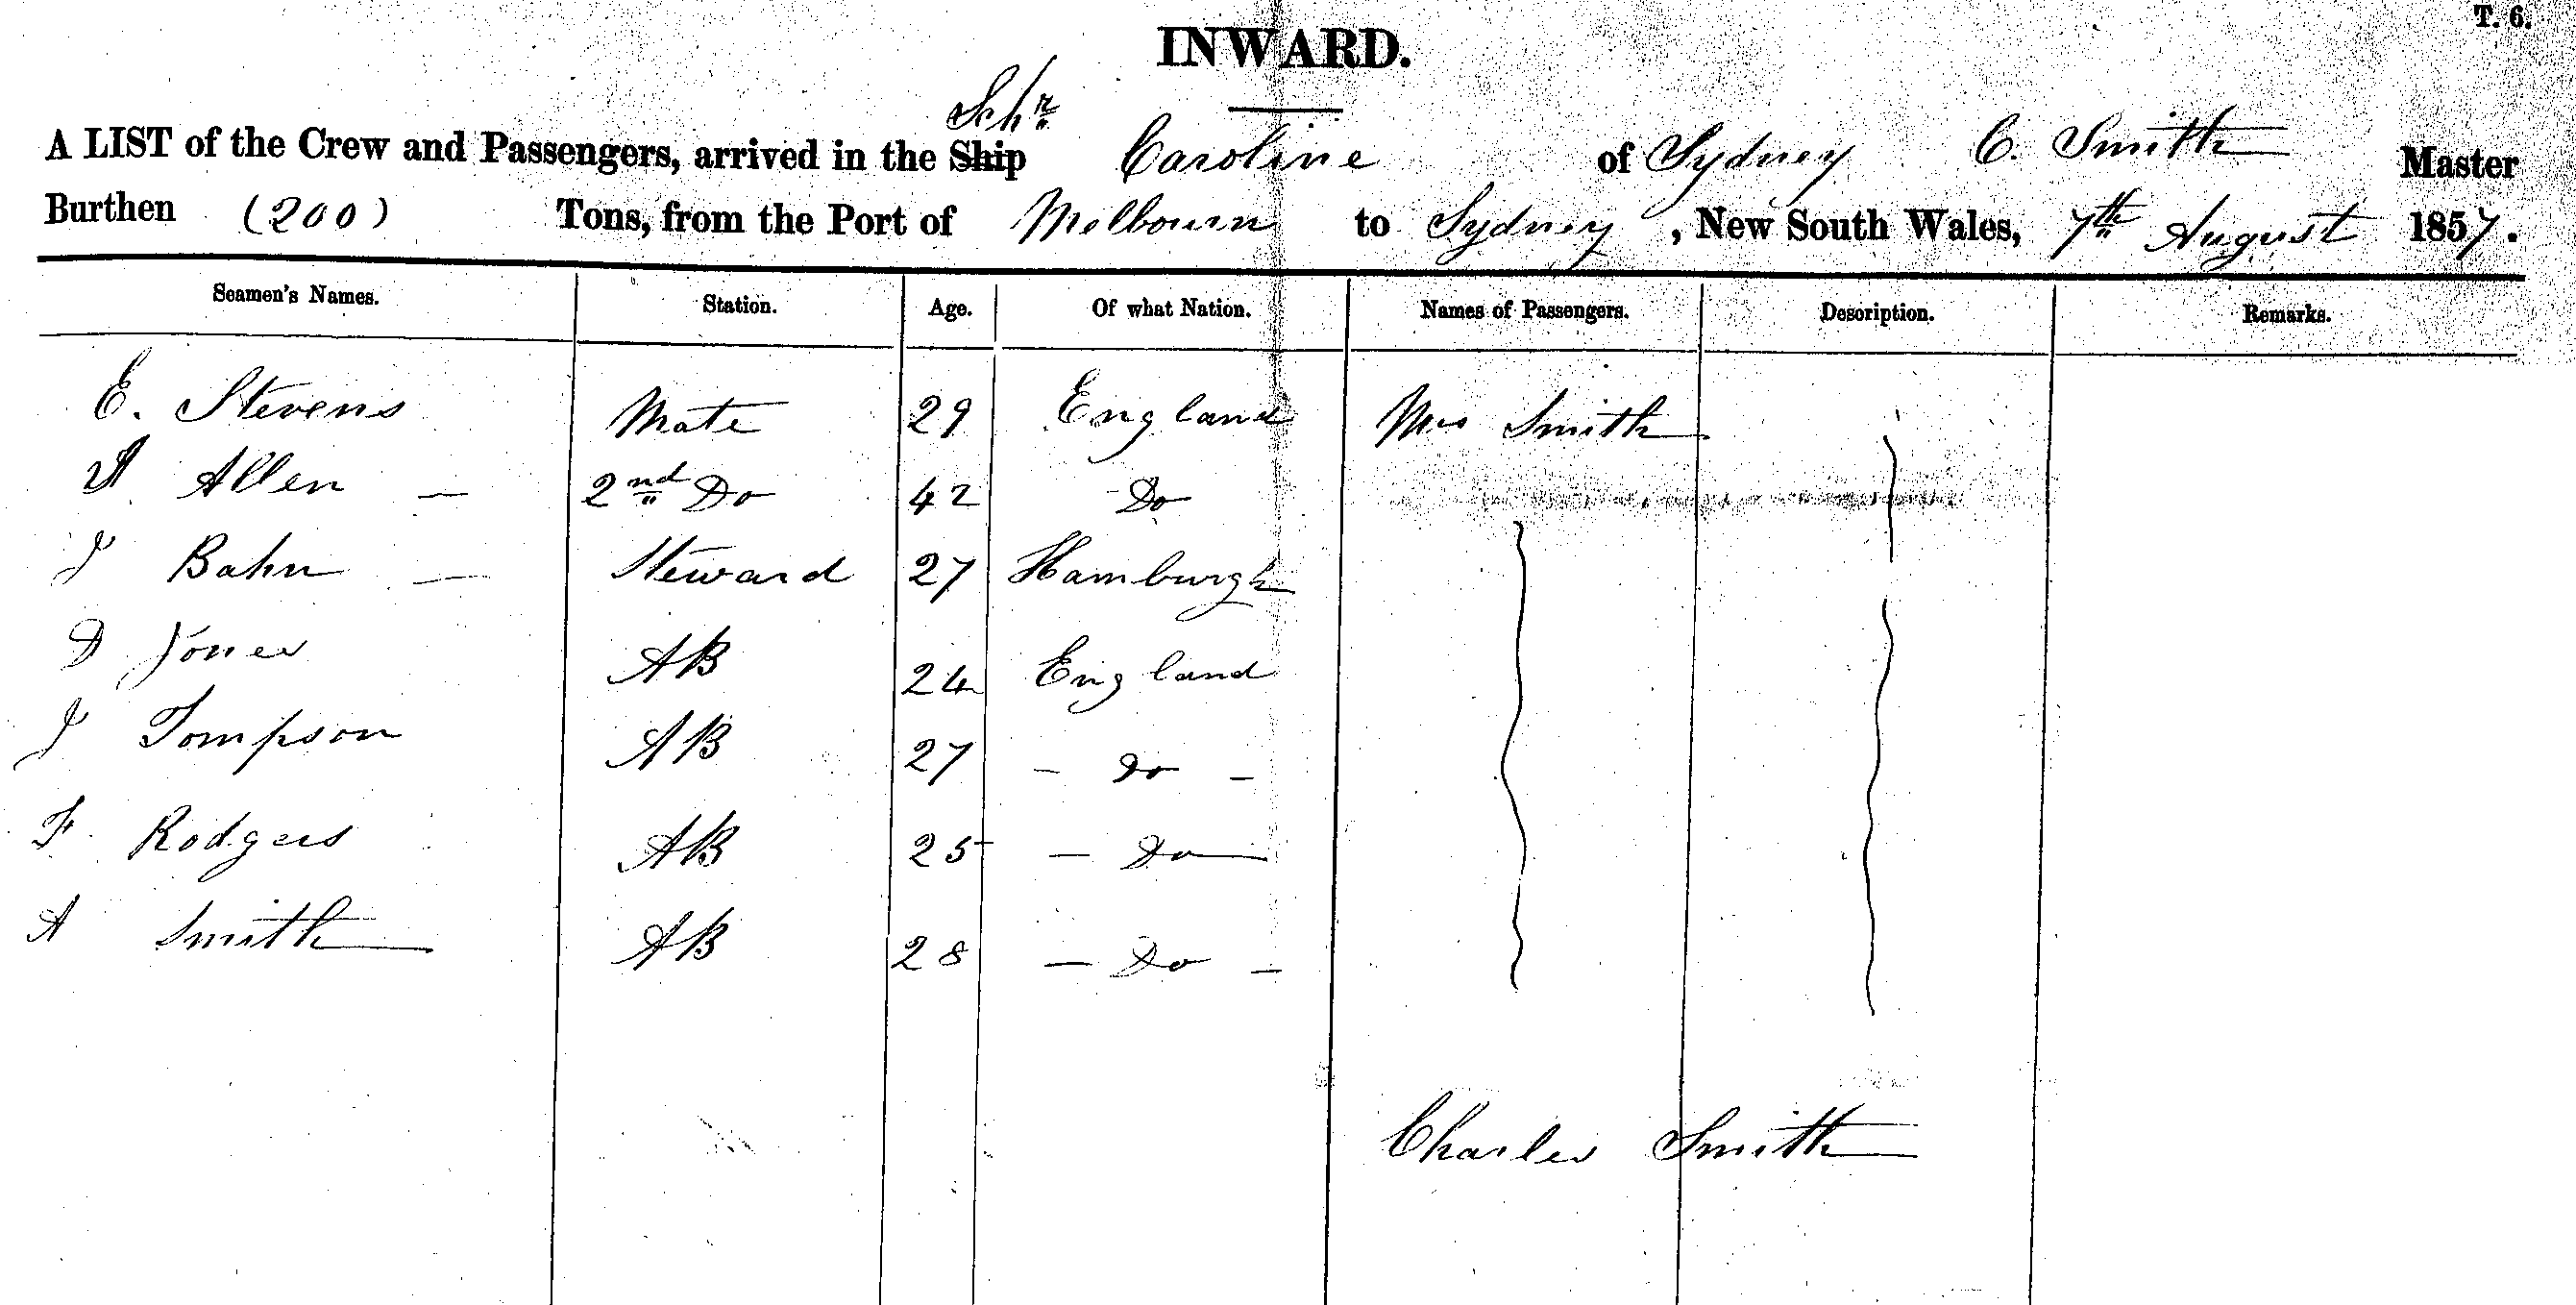 T. 6.
INWARD.
Schr
A LIST of the Crew and Passengers, arrived in the Ship Caroline of Sydney C. Smith Master
Burthen (200) Tons, from the Port of Melbourn to Sydney, New South Wales, 7th August 1857.
Seamen's Names. Station. Age. Of what Nation. Names of Passengers. Description. Remarks.
E. Stevens Mate 29 England Mrs Smith
Allen — 2nd Do 42 Do
J Bahn — Steward 27 Hamburgh
D Jones AB 24 England
J Tompson AB 27 — Do —
F Rodgers AB 25 — Do —
A Smith AB 28 — Do —
Charles Smith